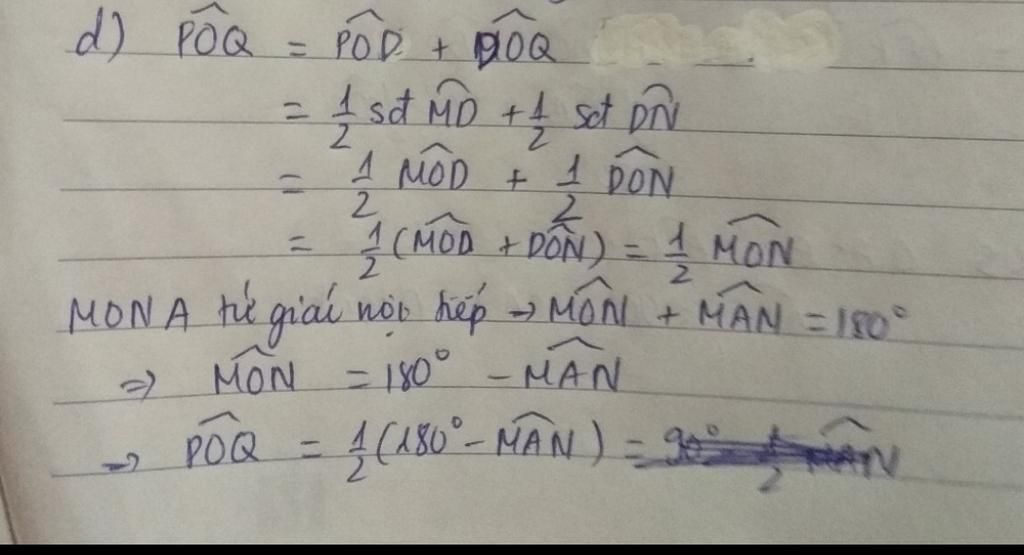 d) \widehat{POQ} = \widehat{POD} + \widehat{DOQ}
= \frac{1}{2} sđ \widehat{MD} + \frac{1}{2} sđ \widehat{DN}
= \frac{1}{2} \widehat{MOD} + \frac{1}{2} \widehat{DON}
= \frac{1}{2} (\widehat{MOD} + \widehat{DON}) = \frac{1}{2} \widehat{MON}
MONA tứ giái nội tiếp → \widehat{MON} + \widehat{MAN} = 180°
⇒ \widehat{MON} = 180° - \widehat{MAN}
⇒ \widehat{POQ} = \frac{1}{2} (180° - \widehat{MAN}) =